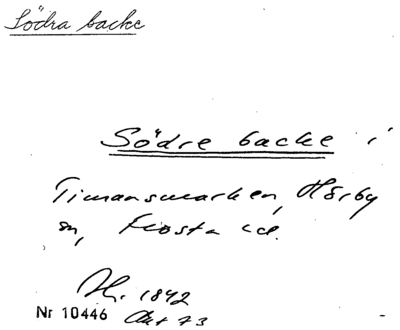 Södra backe
Södre backe i
Timansmarken, Hörby
sn, Frosta hd.
1842
Nr 10446 Akt 73